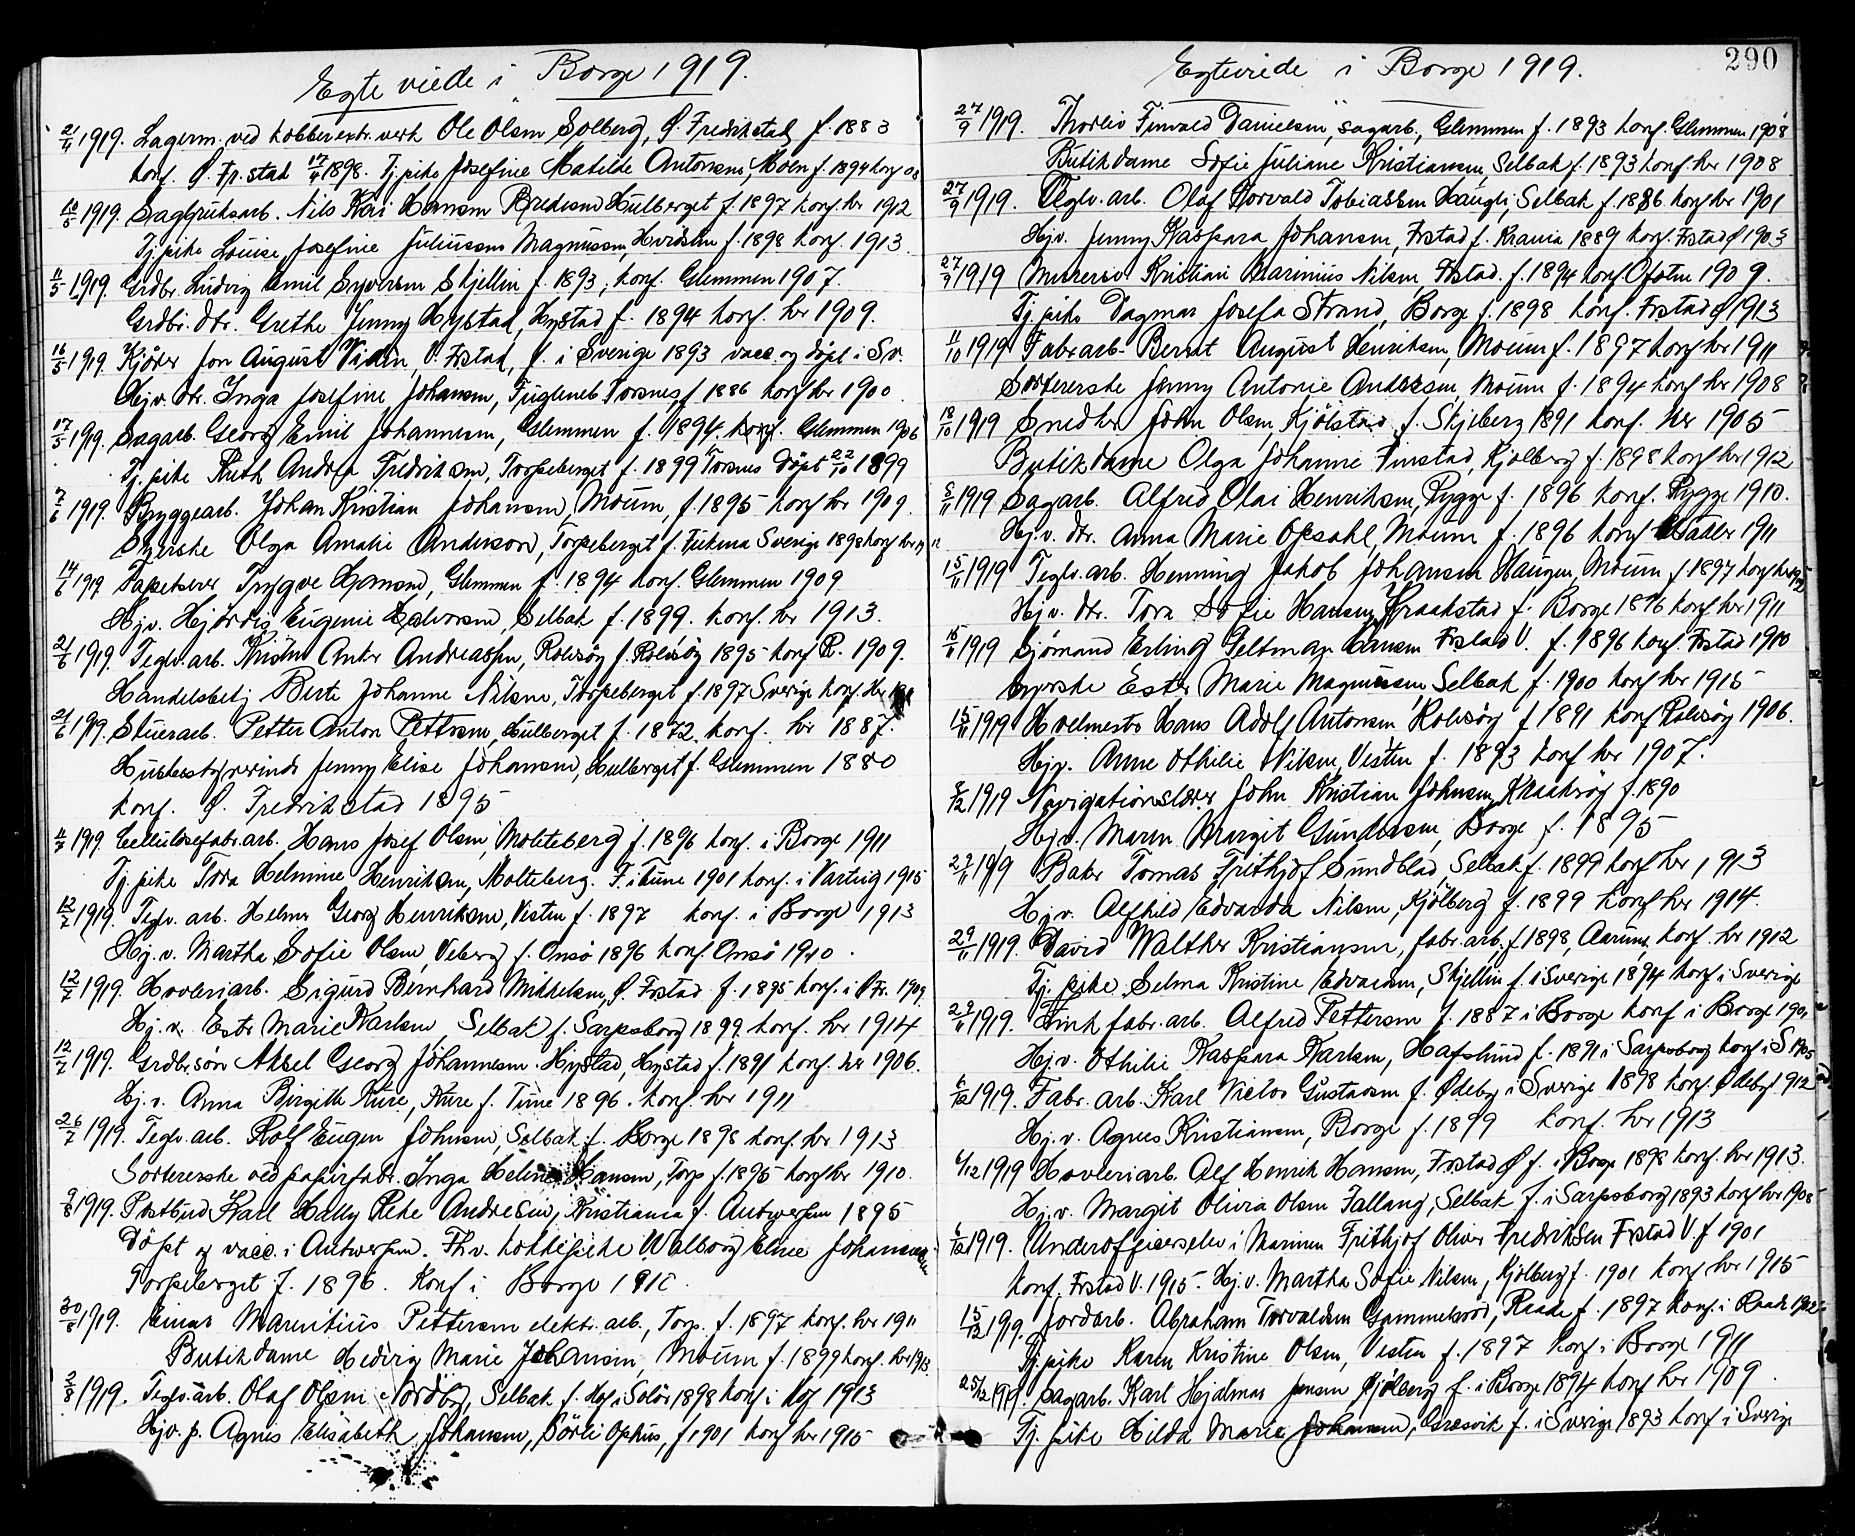 Egte viede i Borge 1919.
21/4 1919. Lagerm. ved kobberextr. verk Ole Olsen Solberg, Ø. Fredrikstad f. 1883
konf. Ø. Fr.stad 17/4 1898. Tj. pike Josefine Matilde Antonsen, Moen f. 1894 konf 08
10/5 1919. Sagbruksarb. Nils Kåri Hansen Bredesen Hulberget f. 1897 konf. her 1912
Tj. pike Louise Josefine Juliussen Magnussen, Hvidsten f. 1898 konf. 1913.
11/5 1919. Grdbr. Ludvig Emil Syversen Skjellin f. 1893, konf. Glemmen 1907.
Grdbr. dtr. Grethe Jenny Hystad, Hystad f. 1894 konf. her 1909.
16/5 1919. Kjører Jon August Viden, V. Frstad, f. i Sverige 1893 vacc. og døpt i Sv.
Hjv. dtr. Inga Josefine Johansen, Fugleneb Torsnes, f 1886 konf her 1900.
17/5 1919. Sagarb. Georg Emil Johannesen, Glemmen f. 1894, konf. Glemmen 1908
Tj. pike Ruth Andrea Fredriksen, Torpeberget f. 1899 Torsnes døpt 22/10 1899
7/6 1919. Bryggearb. Johan Kristian Johansen, Moum, f. 1895 konf her 1909.
Syerske Olga Amalie Anderson, Torpeberget f. Sverige 1898 konf her
14/6 1919 Tapetserer Trygve Hansen, Glemmen f. 1894 konf. Glemmen 1909
Hjv. Hjørdis Eugenie Halvorsen, Selbak f. 1899. konf. her 1913.
21/6 1919. Teglv. arb. Kristen Anker Andreassen, Rolvsøy f. Rolvsøy 1895 konf R. 1909.
Handelsbetj Berte Johanne Nilsen, Torpeberget f. 1897 Sverige konf. Her
21/6 1919. Stuerarb. Petter Anton Pettersen, Hulberget f. 1872, konf. her 1887.
Husbestyrerinde Jenny Elise Johansen, Hulberget f. Glemmen 1880
konf. Ø. Fredrikstad 1895
11/7 1919. Cellulosefabr. arb. Hans Josef Olsen, Molteberg f. 1896 konf. i Borge 1911
Tj. pike Tora Helmine Henriksen, Molteberg. F. i Tune 1901 konf. i Varteig 1915
12/7 1919. Teglv. arb. Helmer Georg Henriksen, Visten f. 1897 konf. i Borge 1913
Hj. v. Martha Sofie Olsen, Veberg f. Onsø 1896 konf. Onsø 1910.
12/7 1919. Høvleriarb. Sigurd Bernhard Mikkelsen, Ø. Frstad f. 1895 konf. i Ø Fr. 1909.
Hj. v. Ester Marie Karlsen, Selbak f. Sarpsborg 1899 konf. her 1914
12/7 1919. Grdbr.søn Aksel Georg Johannesen Hystad, Hystad f. 1891 konf. her 1906.
Hj. v. Anna Birgitte Kure, Kure f. Tune 1896. konf. her 1911
26/7 1919. Teglv. arb. Rolf Eugen Johnsen, Selbak f. Borge 1898 konf. her 1913
Sortererske ved papirfabr. Inga Helmine Hansen, Torp f. 1895 konf her 1910.
9/8 1919. Postbud Karl Andresen, Kristiania f. Antwerpen 1895
Døpt og vacc. i Antwerpen. Fhv. kokkepike Walborg Elnee Johannesen
Torpeberget f. 1896. Konf i Borge 1910.
30/8 1919. Einar Mauritius Pettersen elektr. arb., Torp. f. 1897 konf. her 1911
Butikdame Hedvig Marie Johansen, Moum f. 1899 konf. her 1913.
2/8 1919. Teglv. arb. Olaf Olsen Nordby, Selbak f. Hof i Solør 1898 konf. i Hof 1913
Hjv. p. Agnes Elisabeth Johansen, Sørli Ophus, f 1901 konf her 1915
Egteviede i Borge 1919.
290
27/9 1919. Thorleiv Finvald Danielsen, sagarb., Glemmen f. 1893 konf. Glemmen 1908
Butikdame Sofie Juliane Kristiansen, Selbak f. 1893 konf. her 1908
27/9 1919. Teglv. arb. Olaf Torvald Tobiassen Haugli, Selbak f. 1886 konf her 1901
Hjv. Jenny Kaspara Johansen, Frstad f. Krania 1889 konf. Frstad Ø 1903
27/9 1919 Murersv Kristian Marinius Nilsen, Frstad. f. 1894 konf 1909.
Tj. pike Dagmar Josefa Strand, Borge f. 1898 konf. Frstad Ø 1913
11/10 1919 Fabr arb. Bernt August Henriksen, Moum f. 1897 konf her 1911
Sortererske Jenny Antonie Andersen, Moum f. 1894 konf her 1908
18/10 1919 Snedker John Olsen, Kjølstad f. Skjeberg 1891 konf. her 1905
Butikdame Olga Johanne Finstad, Kjølberg f. 1898 konf her 1912
8/11 1919 Sagarb. Alfred Olai Henriksen, Rygge f. 1896 konf. Rygge 1910.
Hj. v. dtr. Anna Marie Opsahl, Moum f. 1896 konf Våler 1911
15/11 1919 Teglv. arb. Henning Jakob Johansen Haugen, Moum f 1897 konf her 1912
Hjv. dtr. Tora Sofie Hansen, Kraakstad f. Borge 1896 konf her 1911
15/11 1919 Sjømand Erling Geltman Hansen Frstad V. f. 1896 konf. Frstad 1910
Syerske Ester Marie Magnussen Selbak f. 1900 konf her 1915
15/11 1919 Høvlmester Hans Adolf Antonsen Rolvsøy f 1891 konf Rolvsøy 1906.
Hjv. Anne Othilie Nilsen, Visten f. 1893 konf her 1907.
1919 Navigationslærer John Kristian Johnsen, Kraakrøy f. 1890
Hjv. Maren Margit Gundersen, Borge f. 1895
1919 Baker Tomas Frithjof Sundblad, Selbak f. 1899 konf her 1913
Hjv. Alfhild Edvarda Nilsen, Kjølberg f. 1899 konf her 1914.
29/11 1919. David Walther Kristiansen, fabr. arb, f. 1898, Aarum, konf. her 1912
Tj. pike Selma Kristine Edvardsen, Skjellin f. i Sverige 1894 konf i Sverige
29/11 1919. Zink fabr. arb. Alfred Pettersen f. 1887 i Borge konf i Borge 190
Hj. v. Othilie Kaspara Karlsen, Hafslund f. 1891 i Sarpsborg konf i S 1905
6/12 1919. Fabr. arb. Karl Victor Gustavsen f. Ødeby i Sverige 1898 konf. Ødeby 1912
Hj. v. Agnes Kristiansen, Borge f. 1899 konf. her 1913
6/12 1919 Høvleriarb. Alf Henrik Hansen, Frstad Ø f. i Borge 1898 konf. her 1913.
Hj. v. Margit Olivia Olsen Fallang, Selbak f. i Sarpsborg 1893 konf her 1908
6/12 1919. Underofficerselev i Marinen Frithjof Oliver Fredriksen Frstad V. f 1901
konf. Frstad V. 1915. Hj. v. Martha Sofie Nilsen, Kjølberg f. 1901 konf her 1915
15/12 1919. Jordarb. Abraham Torvaldsen Gammelsrød, Raade f. 1897 konf. i Raade
Tj. pike Karen Kristine Olsen, Visten f. 1897 konf. i Borge 1911
25/12 1919. Sagarb. Karl Hjalmar Jensen Kjølberg f. i Borge 1894 konf her 1909.
Tj. pike Hilda Marie Johansen, Gresvik f. i Sverige 1893 konf i Sverige